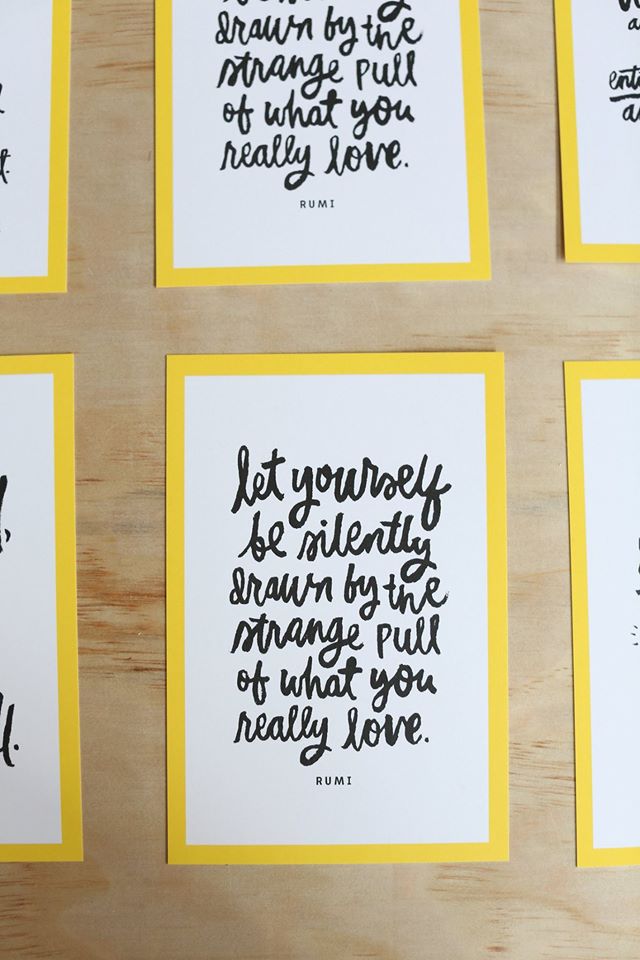 drawn by the
strange pull
of what you
really love.
RUMI
let yourself
be silently
drawn by the
strange pull
of what you
really love.
RUMI